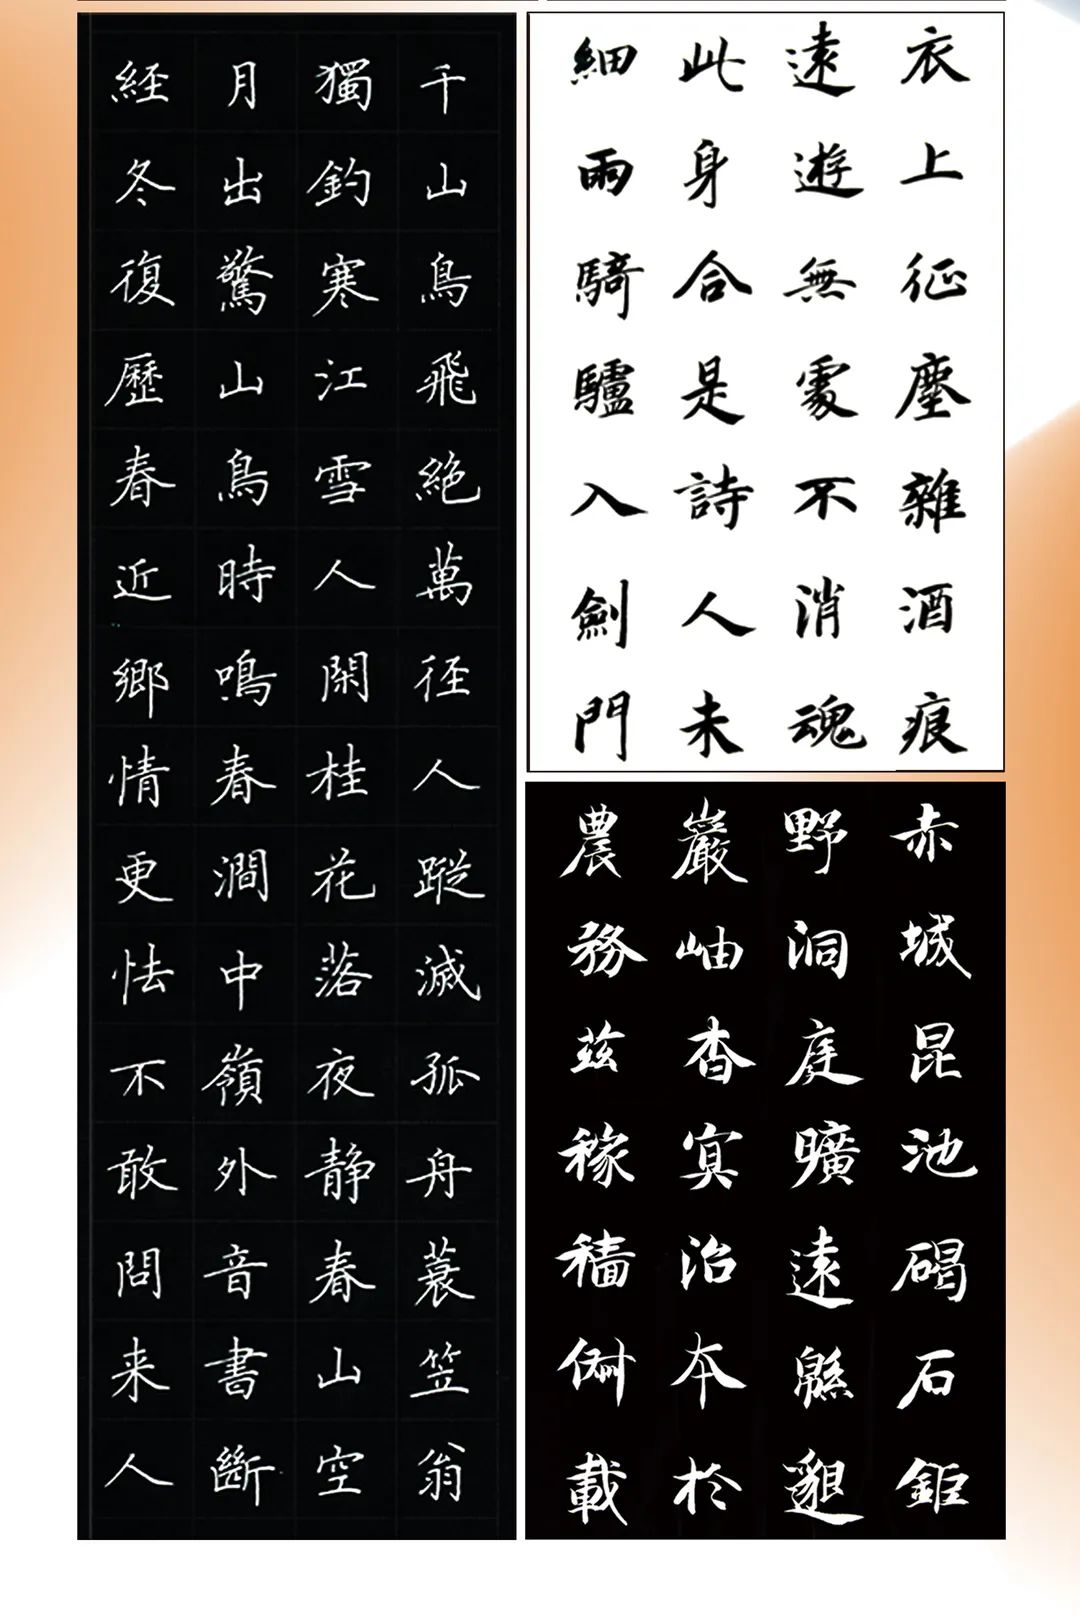 千山鳥飛絶萬徑人蹤滅孤舟蓑笠翁
獨釣寒江雪人閑桂花落夜静春山空
月出驚山鳥時鳴春澗中嶺外音書斷
経冬復歷春近鄉情更怯不敢問来人
衣上征塵雜酒痕
遠遊無處不消魂
此身合是詩人未
細雨騎驢入劍門
赤城昆池碣石鉅
野洞庭曠遠緜邈
巖岫杳冥治本於
農務茲稼穡俶載